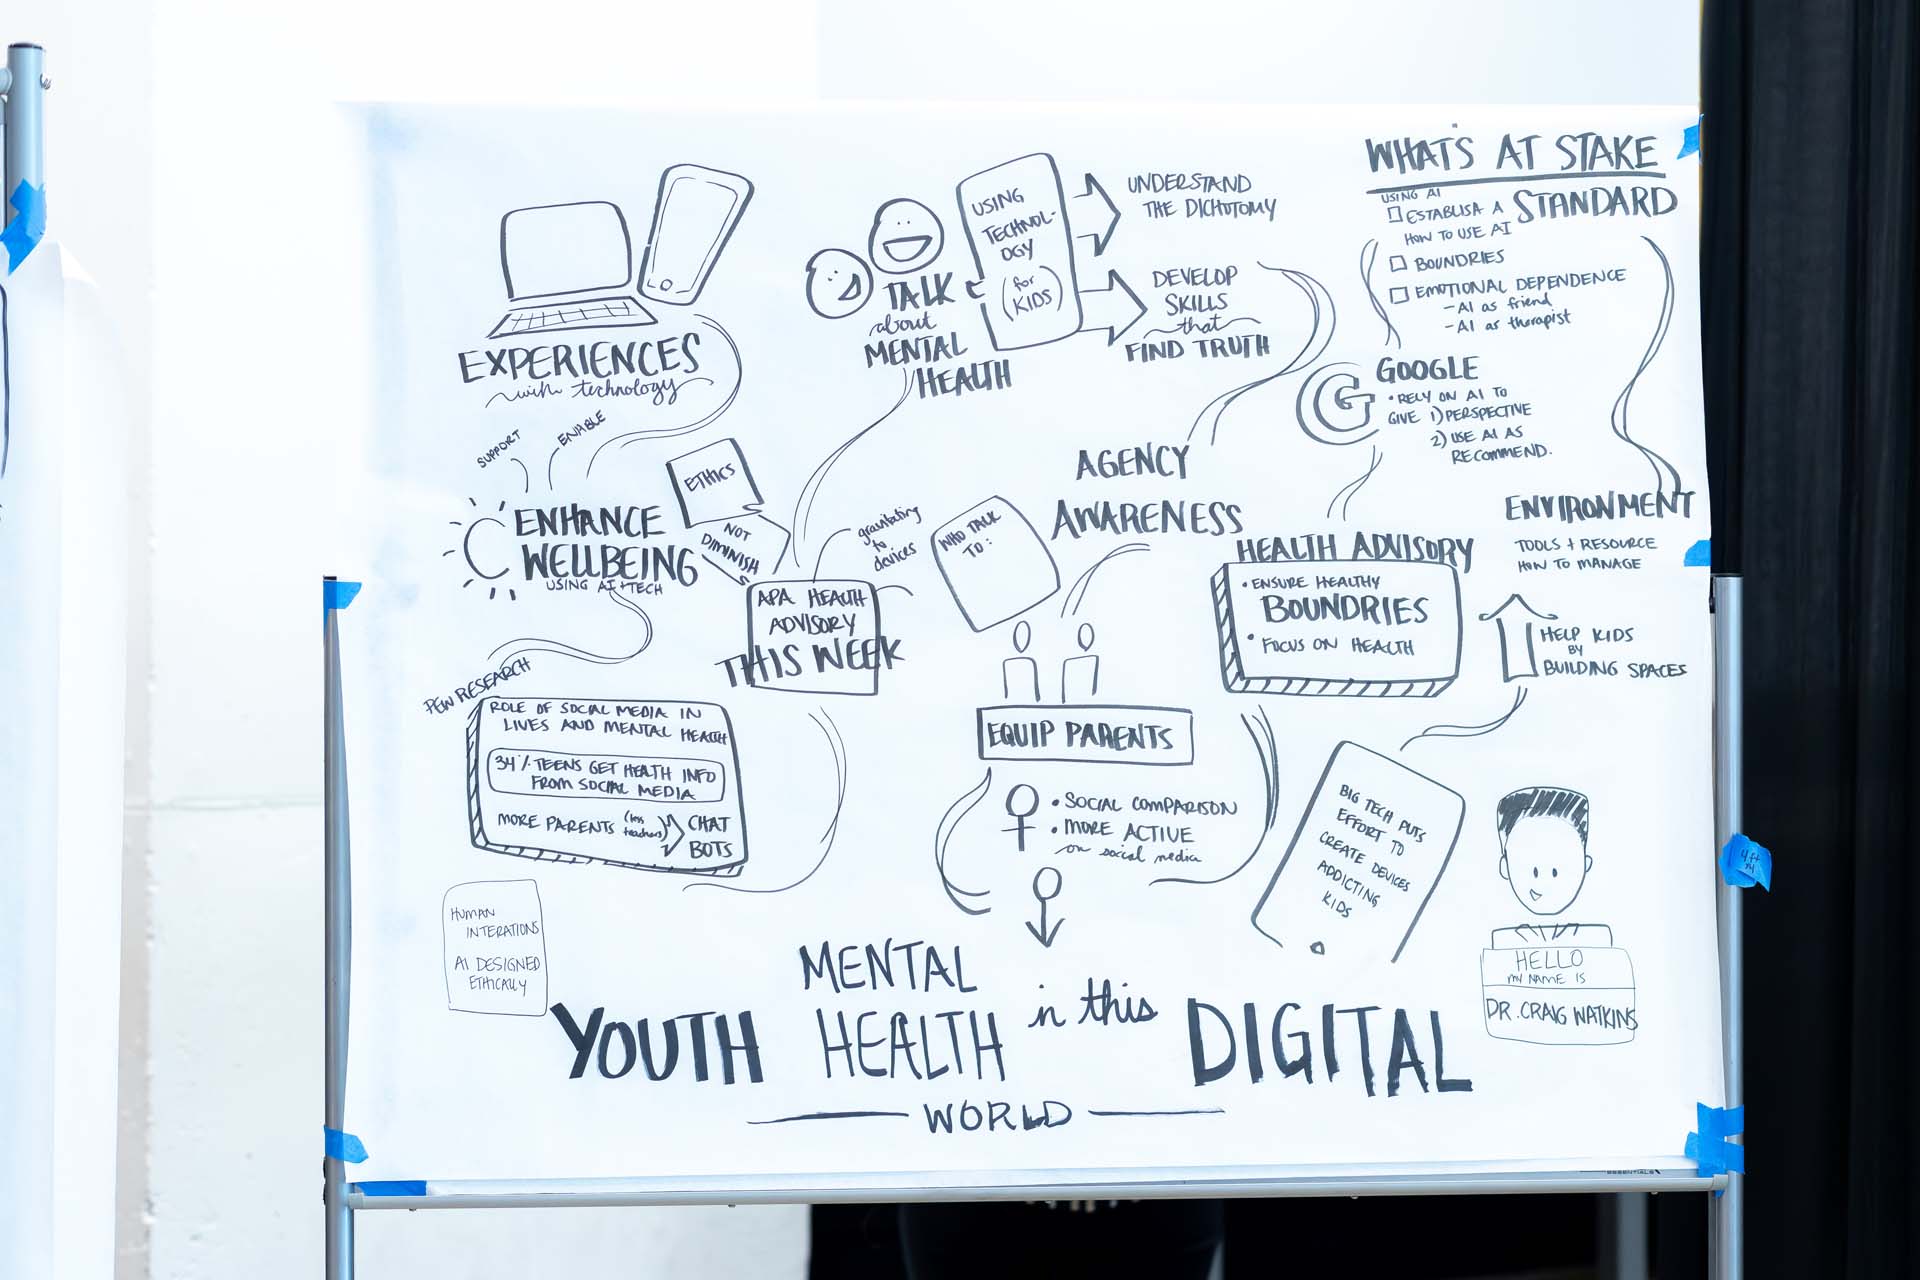 EXPERIENCES
with technology
SUPPORT
ENABLE
ENHANCE
WELLBEING
USING AI + TECH
ETHICS
NOT
DIMINISH
PEW RESEARCH
ROLE OF SOCIAL MEDIA IN
LIVES AND MENTAL HEALTH
34% TEENS GET HEALTH INFO
FROM SOCIAL MEDIA
MORE PARENTS (less
teachers)
CHAT
BOTS
HUMAN
INTERATIONS
AI DESIGNED
ETHICALLY
TALK
about
MENTAL
HEALTH
USING
TECHNOL-
OGY
(for
KIDS)
UNDERSTAND
THE DICHOTOMY
DEVELOP
SKILLS
that
FIND TRUTH
APA HEALTH
ADVISORY
THIS WEEK
gravitating
to
devices
WHO TALK
TO:
AGENCY
AWARENESS
EQUIP PARENTS
• SOCIAL COMPARISON
• MORE ACTIVE
on social media
WHAT'S AT STAKE
USING AI
ESTABLISH A STANDARD
HOW TO USE AI
BOUNDRIES
EMOTIONAL DEPENDENCE
- AI as friend
- AI as therapist
G
GOOGLE
• RELY ON AI TO
GIVE 1) PERSPECTIVE
2) USE AI AS
RECOMMEND.
HEALTH ADVISORY
• ENSURE HEALTHY
BOUNDRIES
• FOCUS ON HEALTH
ENVIRONMENT
TOOLS + RESOURCE
HOW TO MANAGE
HELP KIDS
BY
BUILDING SPACES
BIG TECH PUTS
EFFORT TO
CREATE DEVICES
ADDICTING
KIDS
HELLO
MY NAME IS
DR. CRAIG WATKINS
YOUTH MENTAL HEALTH in this DIGITAL
WORLD